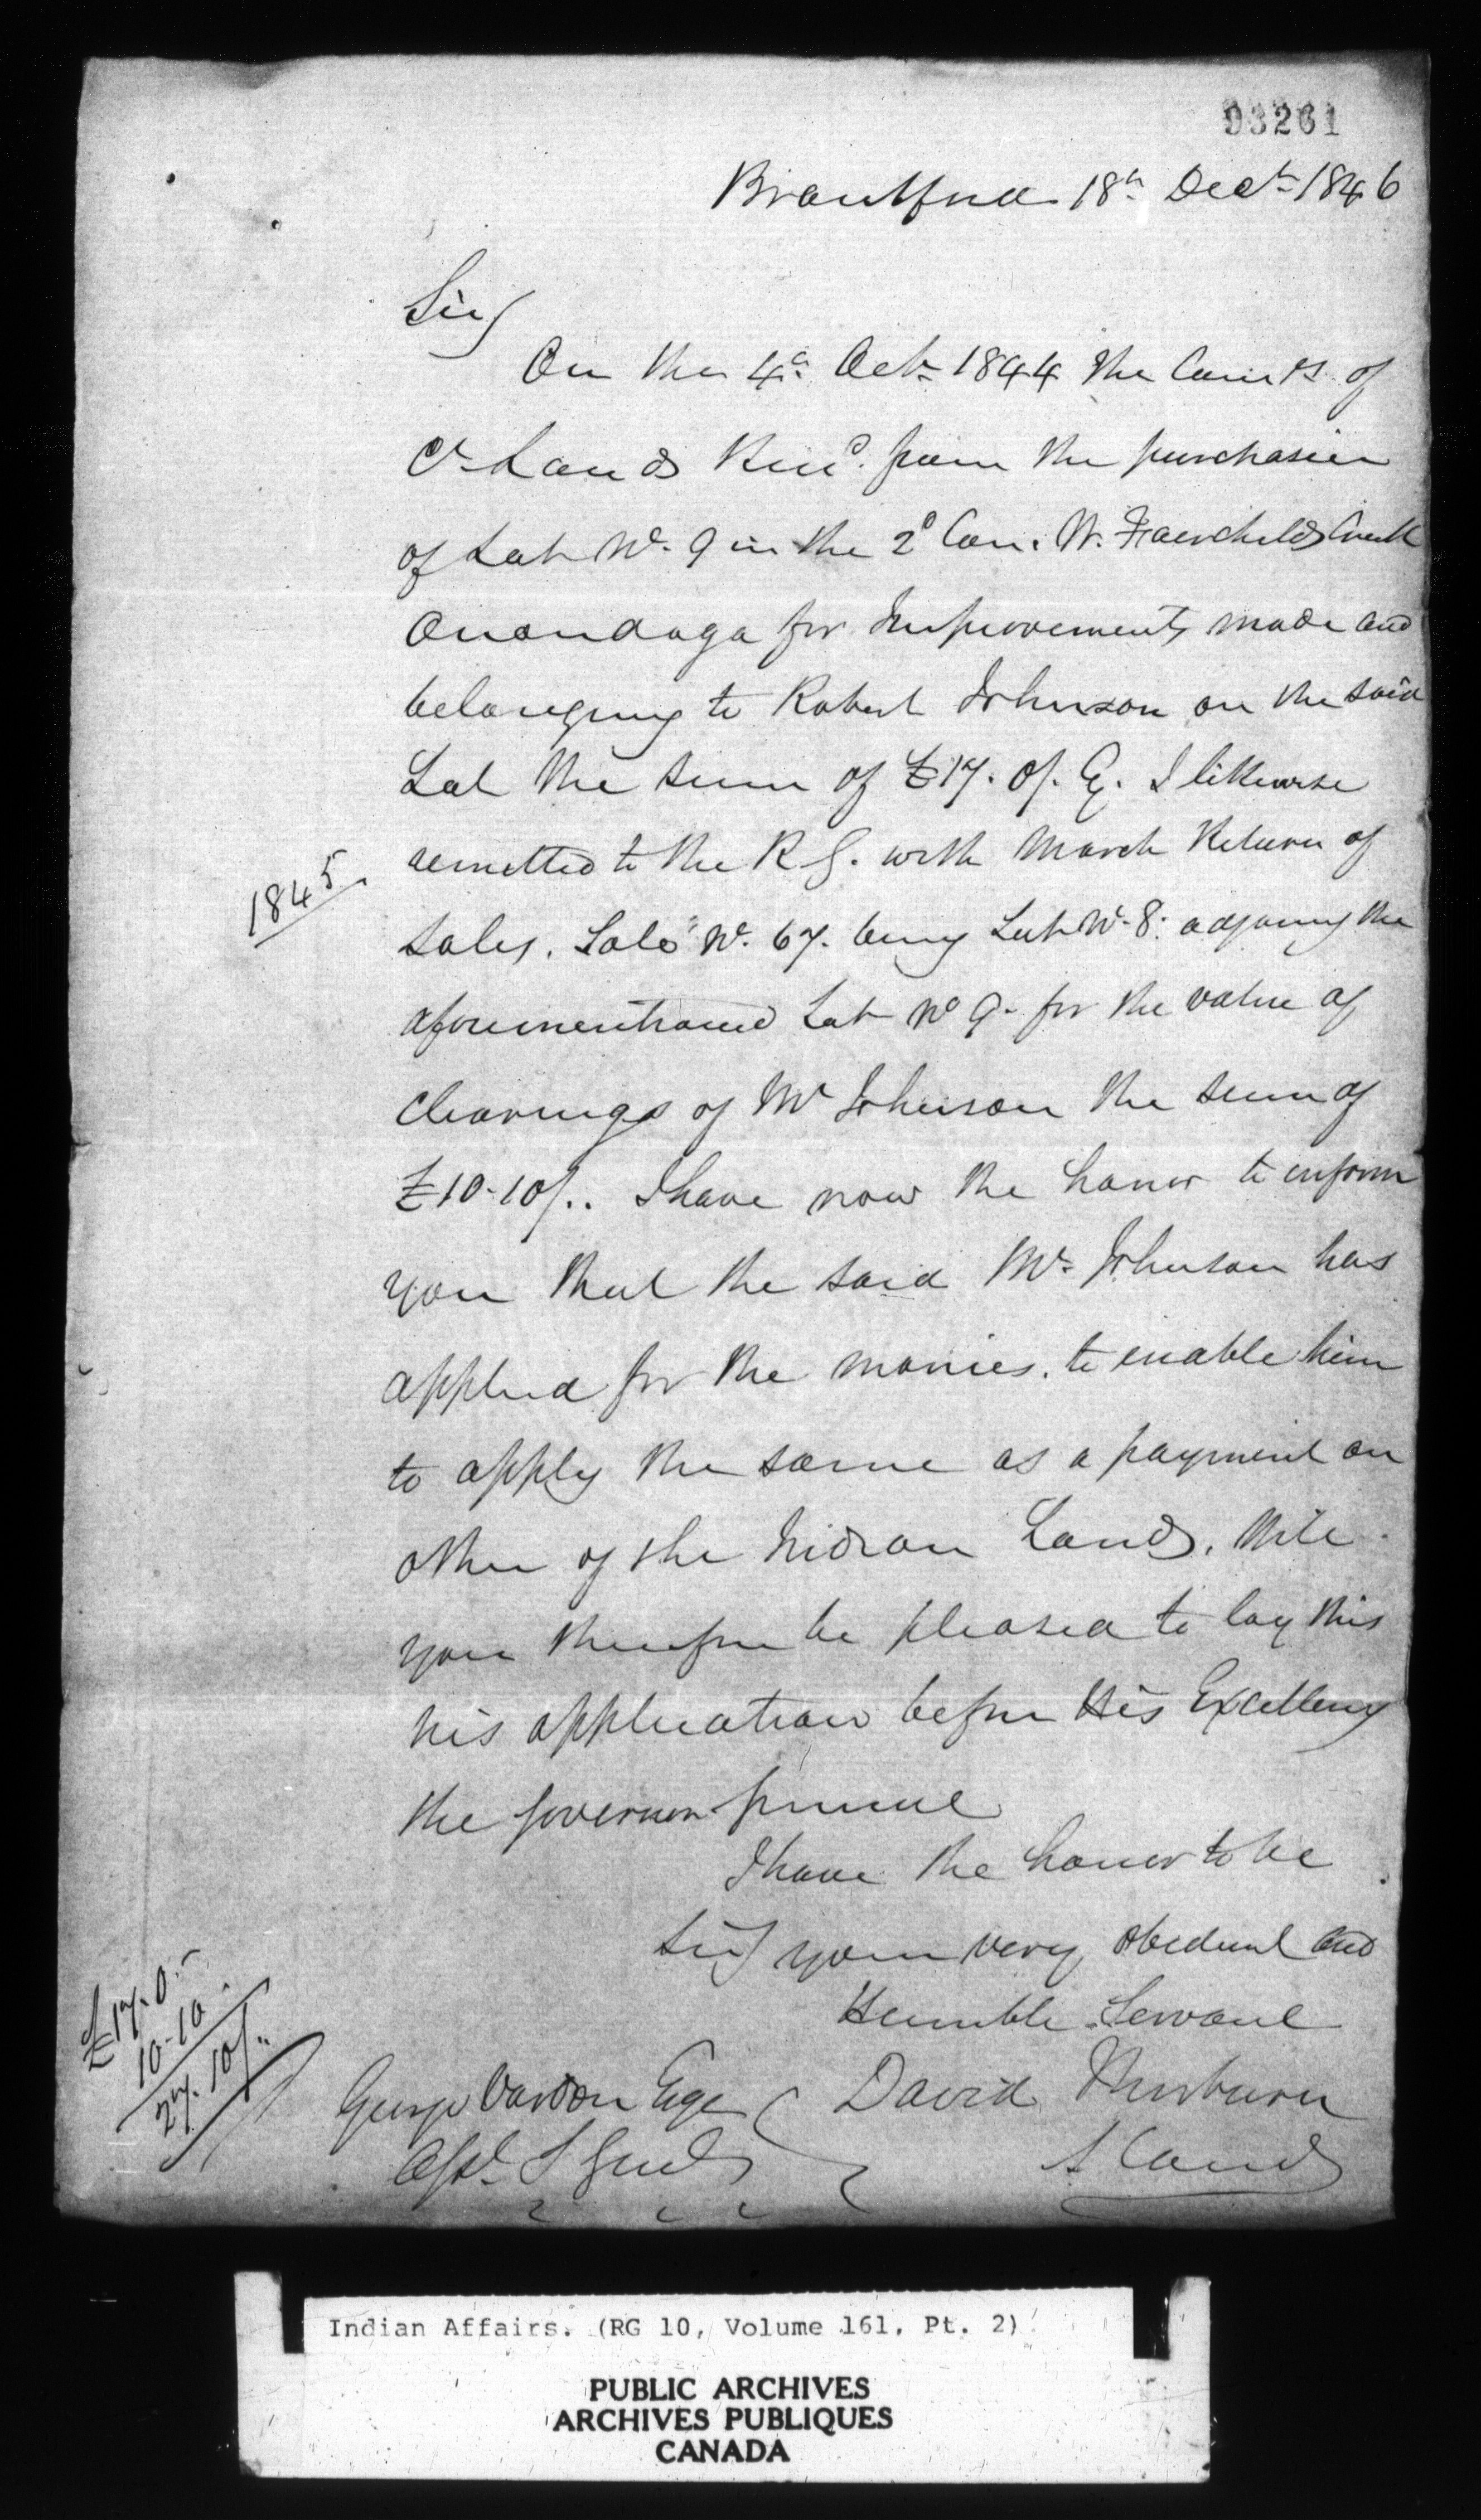 93261
Brantford 18th Decr 1846
Sir/
On the 4th Octr 1844 the Comrs of
Cr Lands Recd. from the purchaser
of Lot No. 9 in the 2d Con. W. Fairchilds Creek
Onondaga for Improvements made and
belonging to Robert Johnson on the said
Lot the sum of £17. 0/. Cy. I likewise
1845
remitted to the R G. with March Return of
Sales. Sale No. 67. being Lot No. 8. adjoing the
aforementioned Lot No 9. for the value of
Clearings of Mr Johnson the sum of
£10-10/.. I have now the honor to inform
you that the said Mr Johnson has
applied for the monies. to enable him
to apply the same as a payment on
other of the Indian Lands. Will
you therefore be pleased to lay this
his application before His Excellency
the Governor General
I have the honor to be
Sir/ your very obedient and
Humble Servant
£17. 0. -
10-10
27. 10/..
George Vardon Esqe David Thorburn
Asst. S Genl
Indian Affairs. (RG 10, Volume 161, Pt. 2)
PUBLIC ARCHIVES
ARCHIVES PUBLIQUES
CANADA